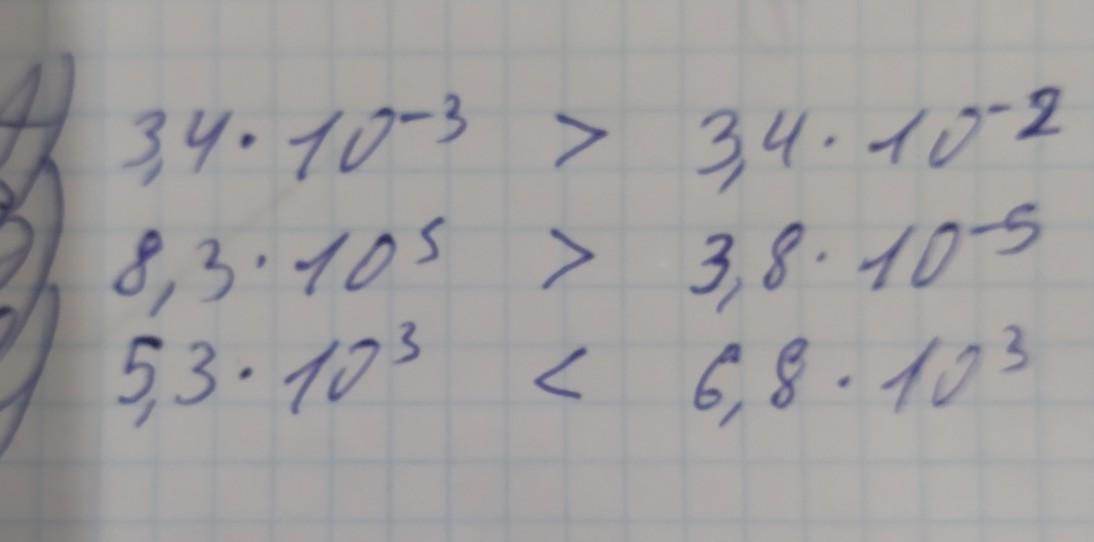 3,4 · 10⁻³ > 3,4 · 10⁻²
8,3 · 10⁵ > 3,8 · 10⁻⁵
5,3 · 10³ < 6,8 · 10³